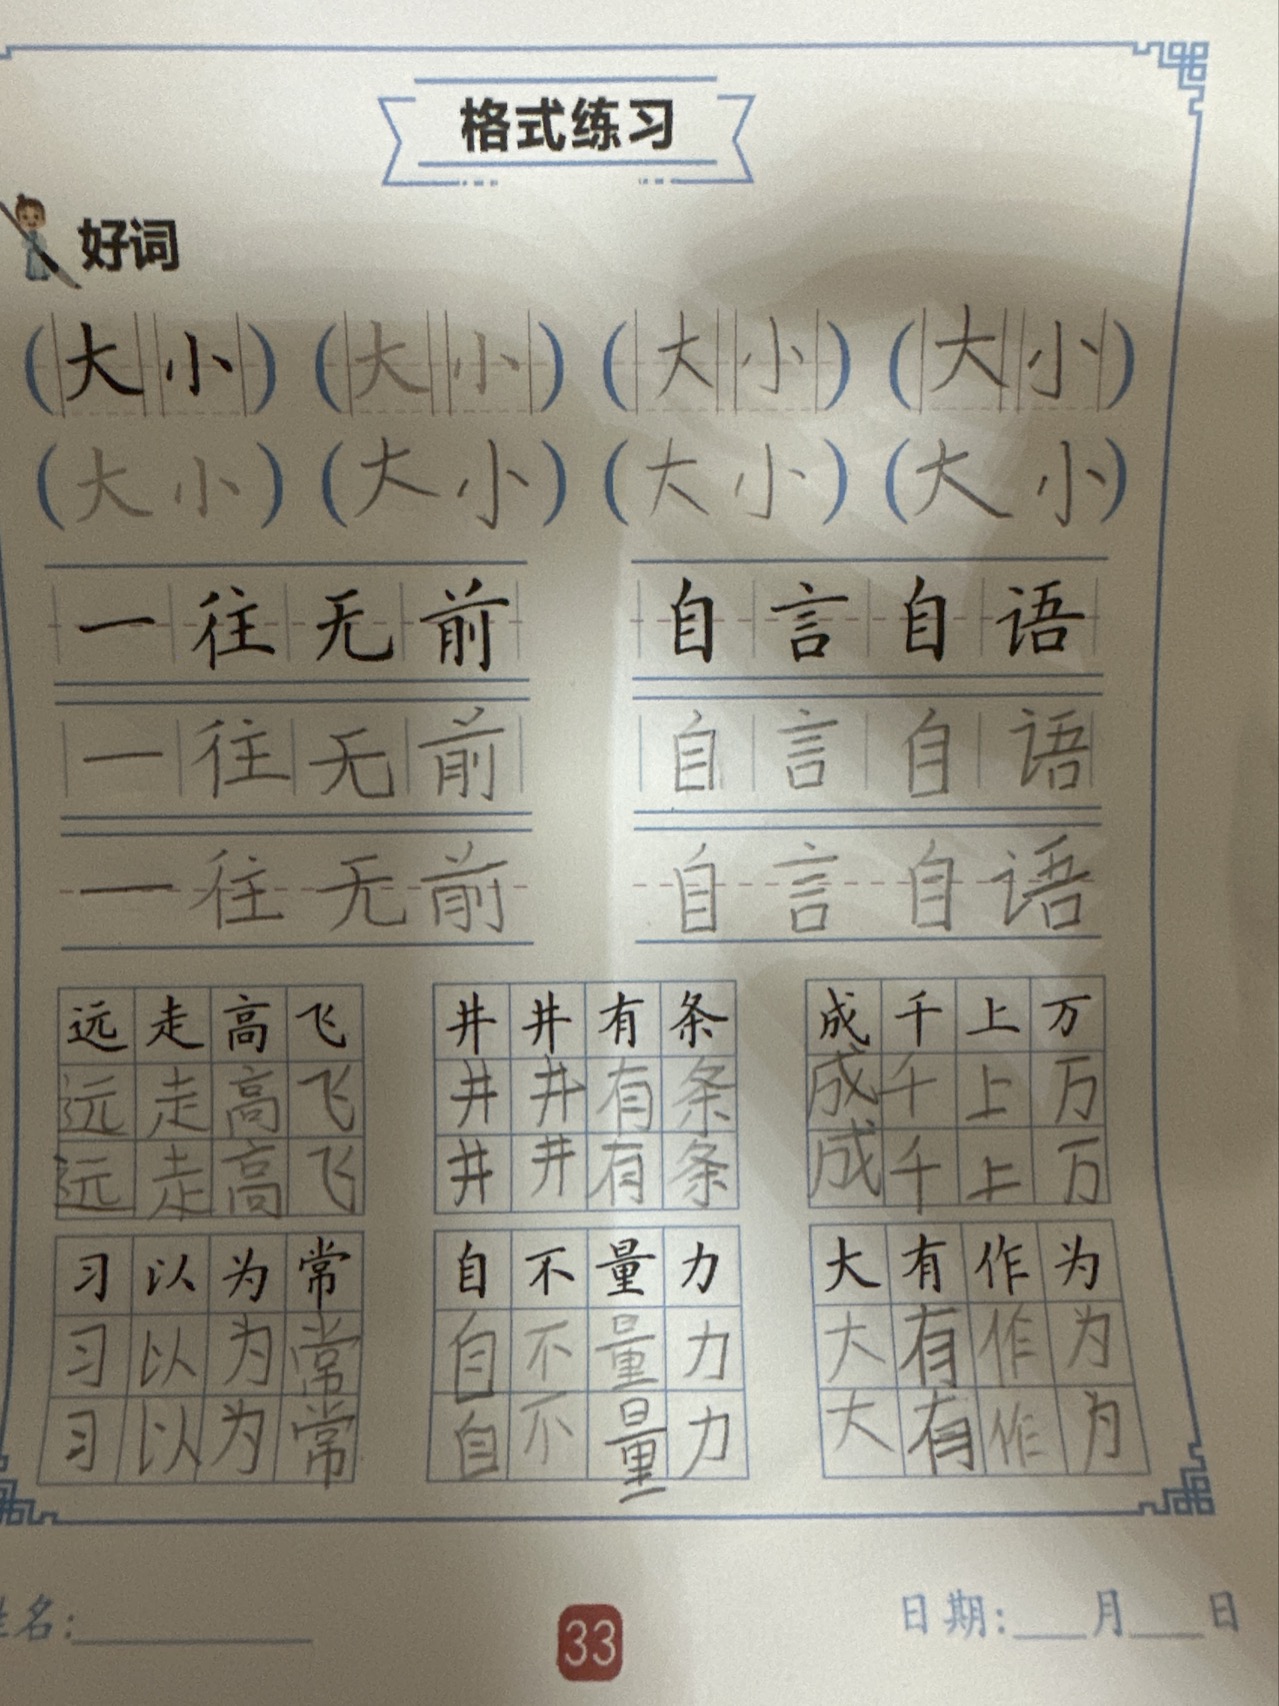 格式练习
好词
(大小) (大小) (大小) (大小)
(大小) (大小) (大小) (大小)
一往无前 自言自语
一往无前 自言自语
一往无前 自言自语
远走高飞 井井有条 成千上万
远走高飞 井井有条 成千上万
远走高飞 井井有条 成千上万
习以为常 自不量力 大有作为
习以为常 自不量力 大有作为
习以为常 自不量力 大有作为
姓名:
33
日期: 月 日